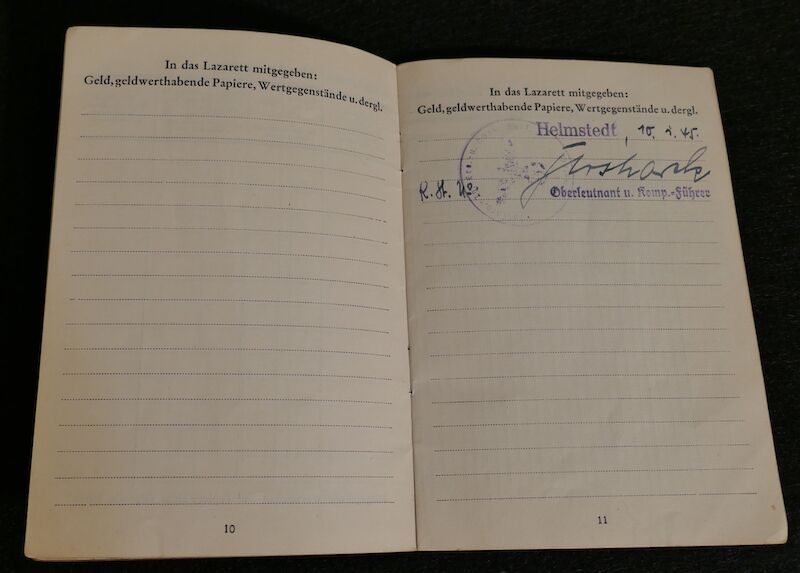 In das Lazarett mitgegeben:
Geld, geldwerthabende Papiere, Wertgegenstände u. dergl.
10
In das Lazarett mitgegeben:
Geld, geldwerthabende Papiere, Wertgegenstände u. dergl.
Helmstedt, 10. 2. 45.
Oberleutnant u. Komp.-Führer
11